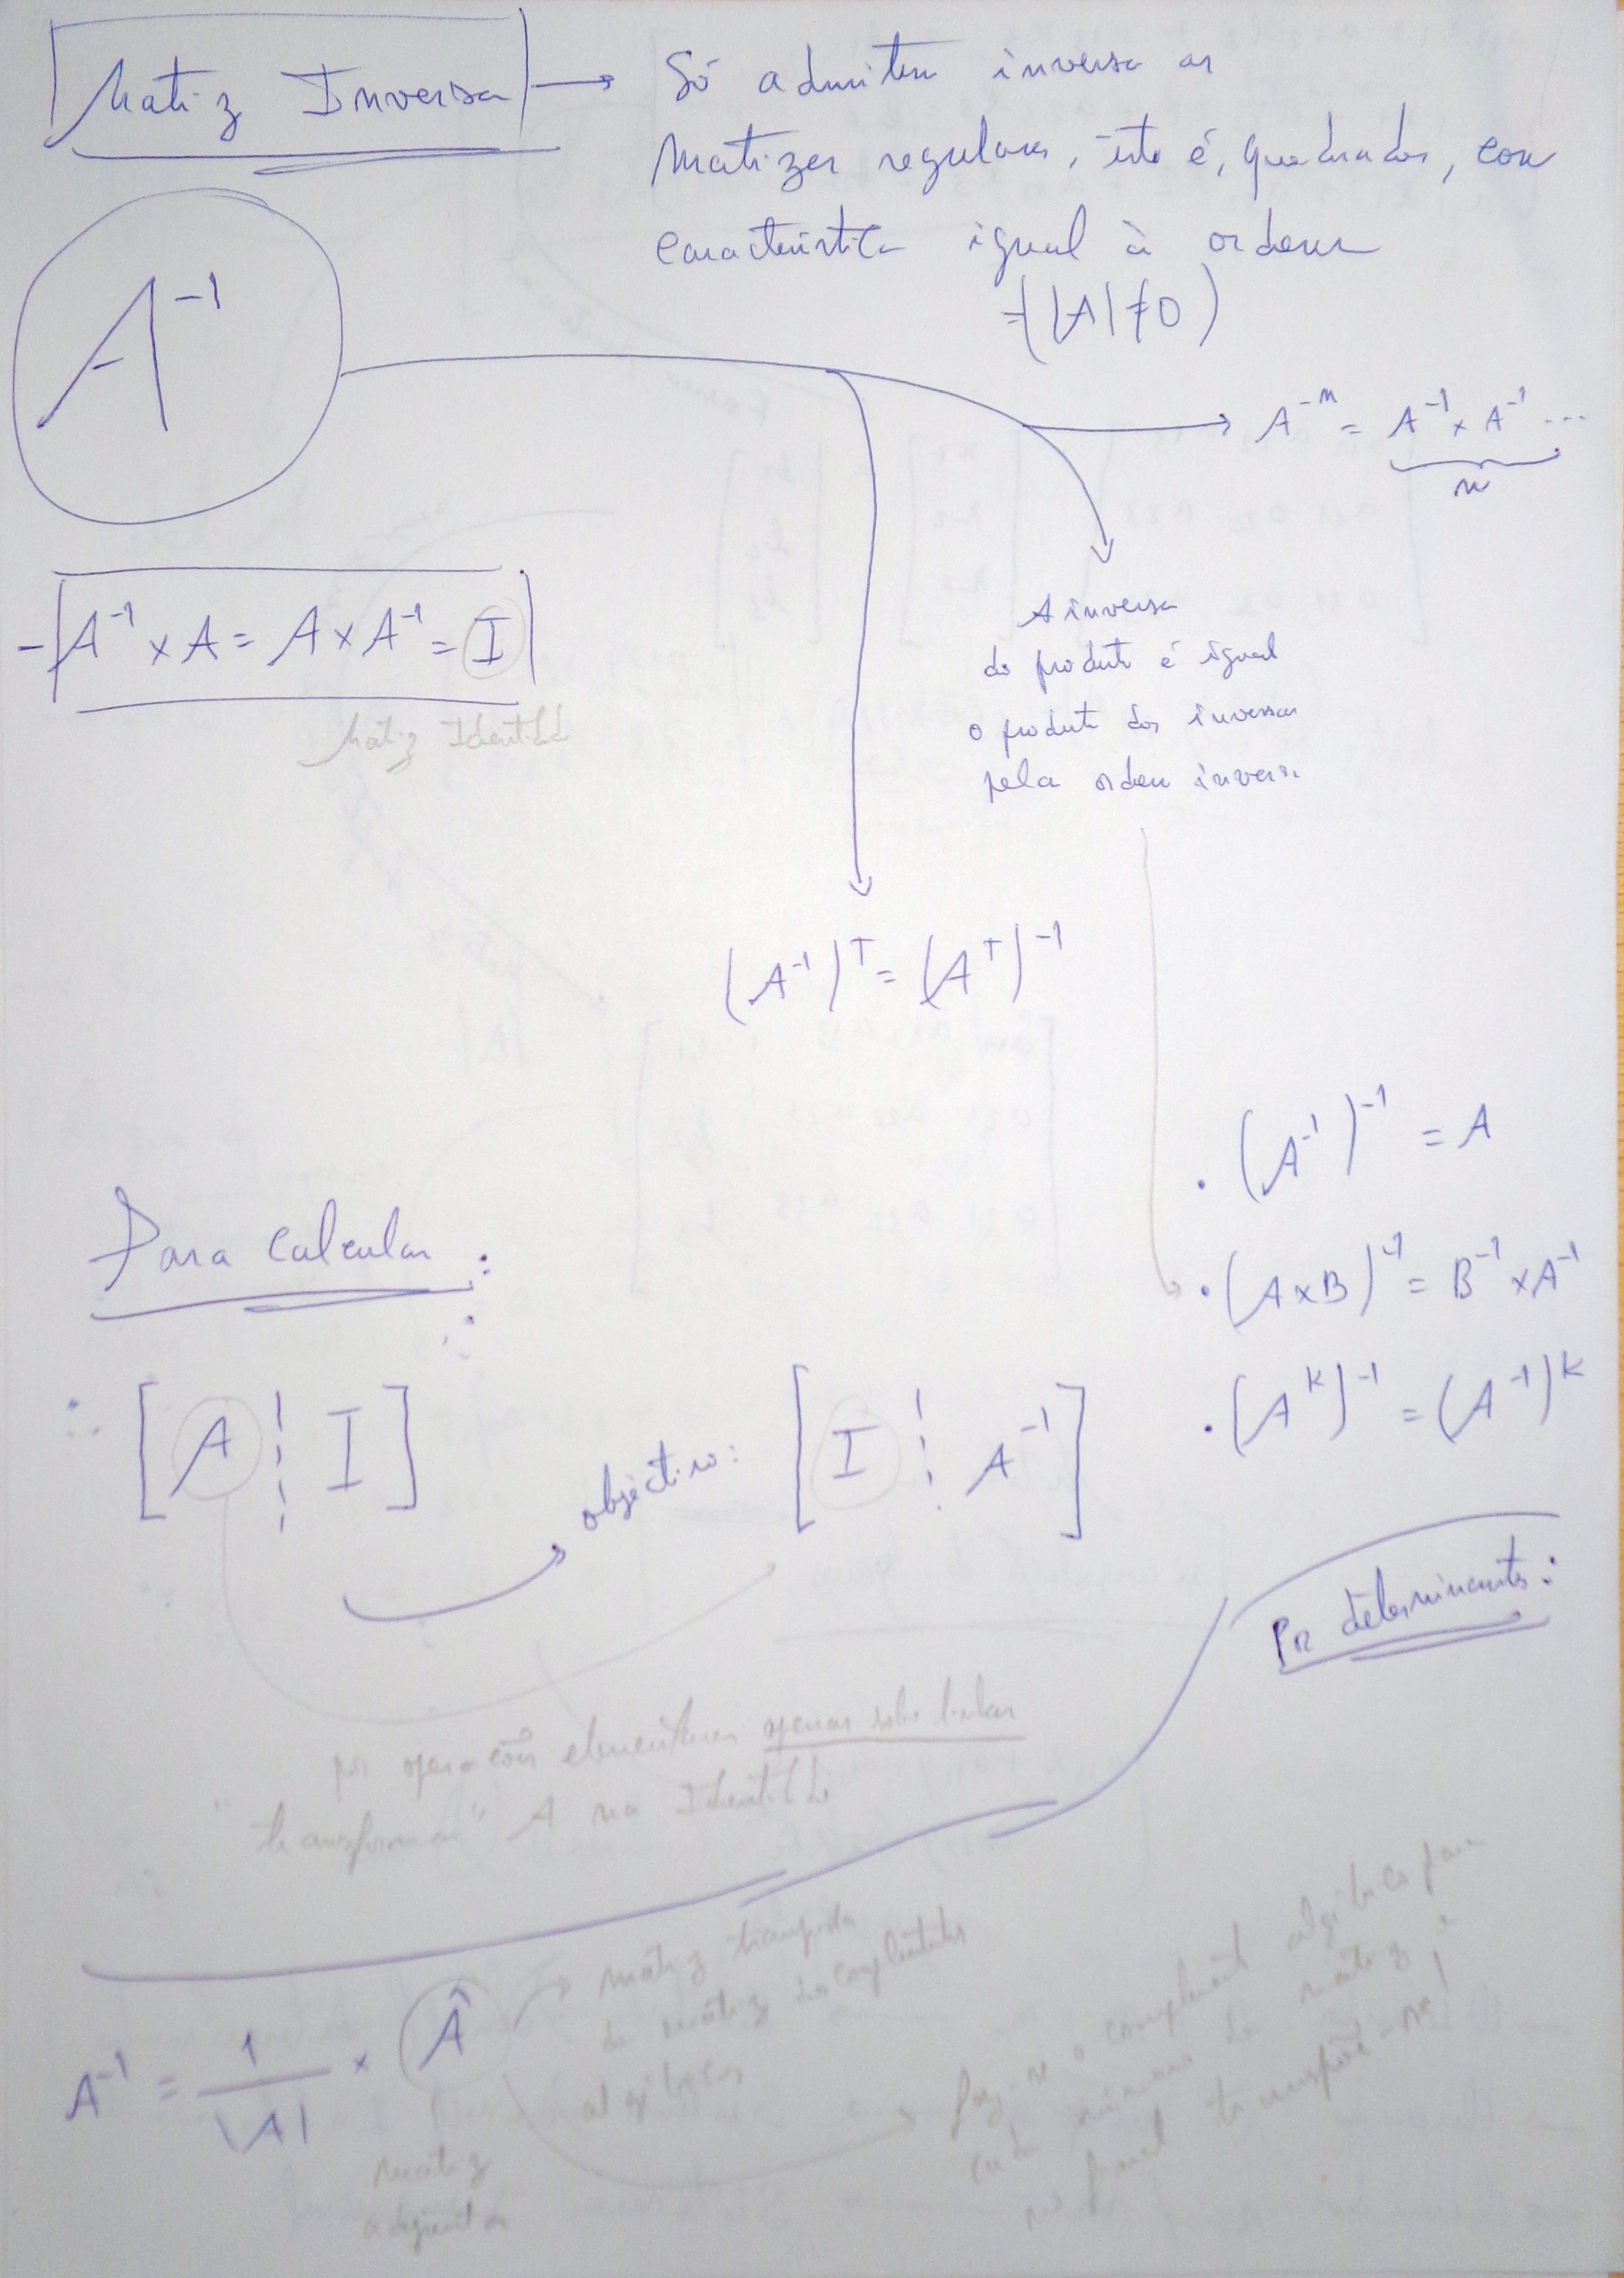 Matriz Inversa → Só admitem inversa as
matrizes regulares, isto é, quadradas, com
característica igual à ordem
(|A| ≠ 0)
A⁻¹
A⁻ⁿ = A⁻¹ × A⁻¹ ...
n
- A⁻¹ × A = A × A⁻¹ = I
Matriz Identidade
A inversa
do produto é igual
o produto das inversas
pela ordem inversa
(A⁻¹)ᵀ = (Aᵀ)⁻¹
• (A⁻¹)⁻¹ = A
• (A×B)⁻¹ = B⁻¹ × A⁻¹
• (Aᴷ)⁻¹ = (A⁻¹)ᴷ
Para calcular:
[A ¦ I]
objectivo: [I ¦ A⁻¹]
por operações elementares apenas sobre linhas
"transformar" A na Identidade
Por determinantes:
A⁻¹ = 1/|A| × Â
matriz transposta
da matriz dos complementos
algébricos
matriz
adjunta
faz-se o complemento algébrico para
cada número da matriz e
no final transpõe-se!